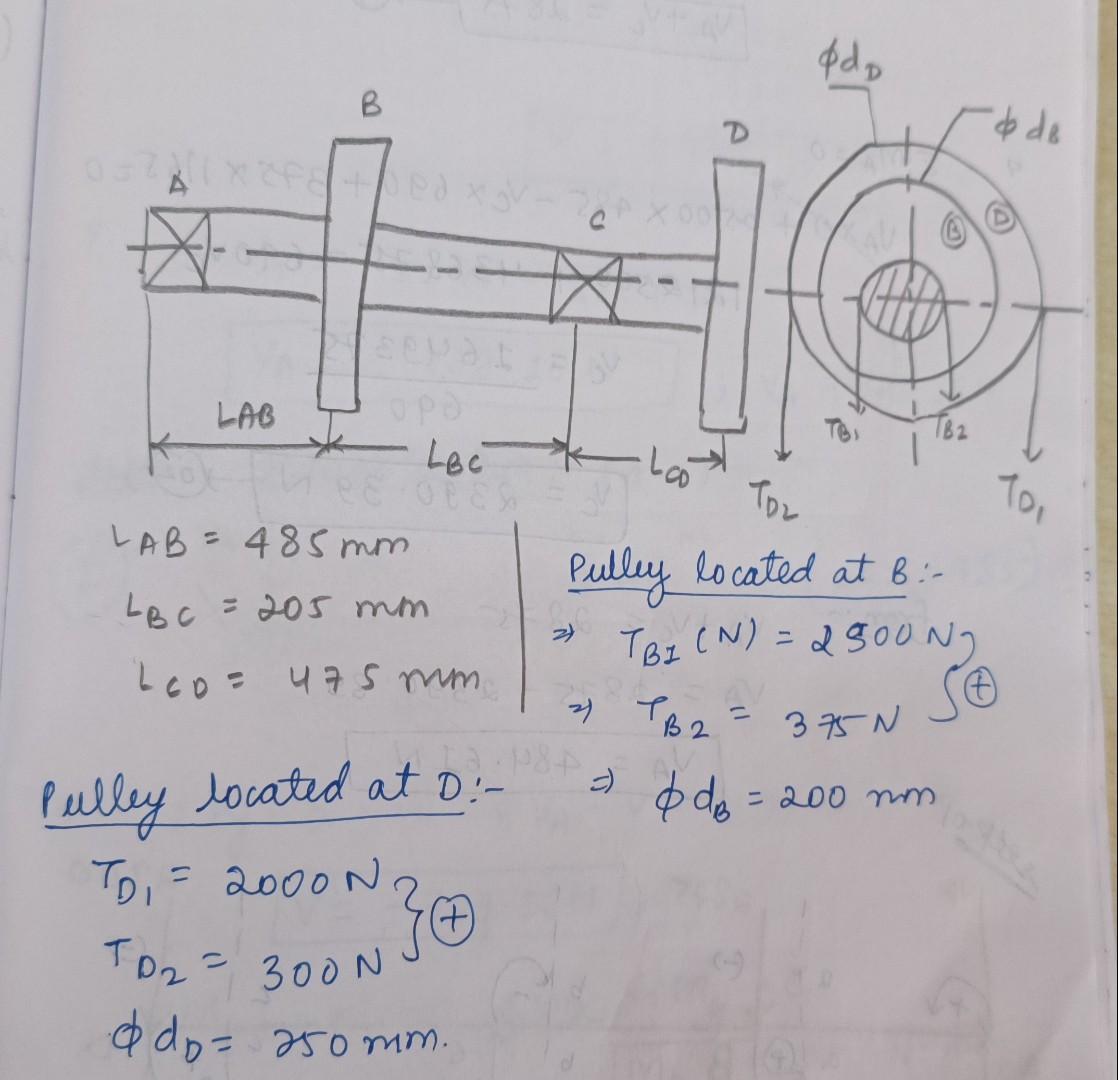 φd_D
B
φ d_B
D
A
C
Ⓑ Ⓓ
L_AB
L_BC
L_CD
T_B1
T_B2
T_D2
T_D1
L_AB = 485 mm
L_BC = 205 mm
L_CD = 475 mm
Pulley located at B:-
⇒ T_B1 (N) = 2500 N
⇒ T_B2 = 375 N
⊕
⇒ φ d_B = 200 mm
Pulley located at D:-
T_D1 = 2000 N
T_D2 = 300 N
⊕
φ d_D = 250 mm.